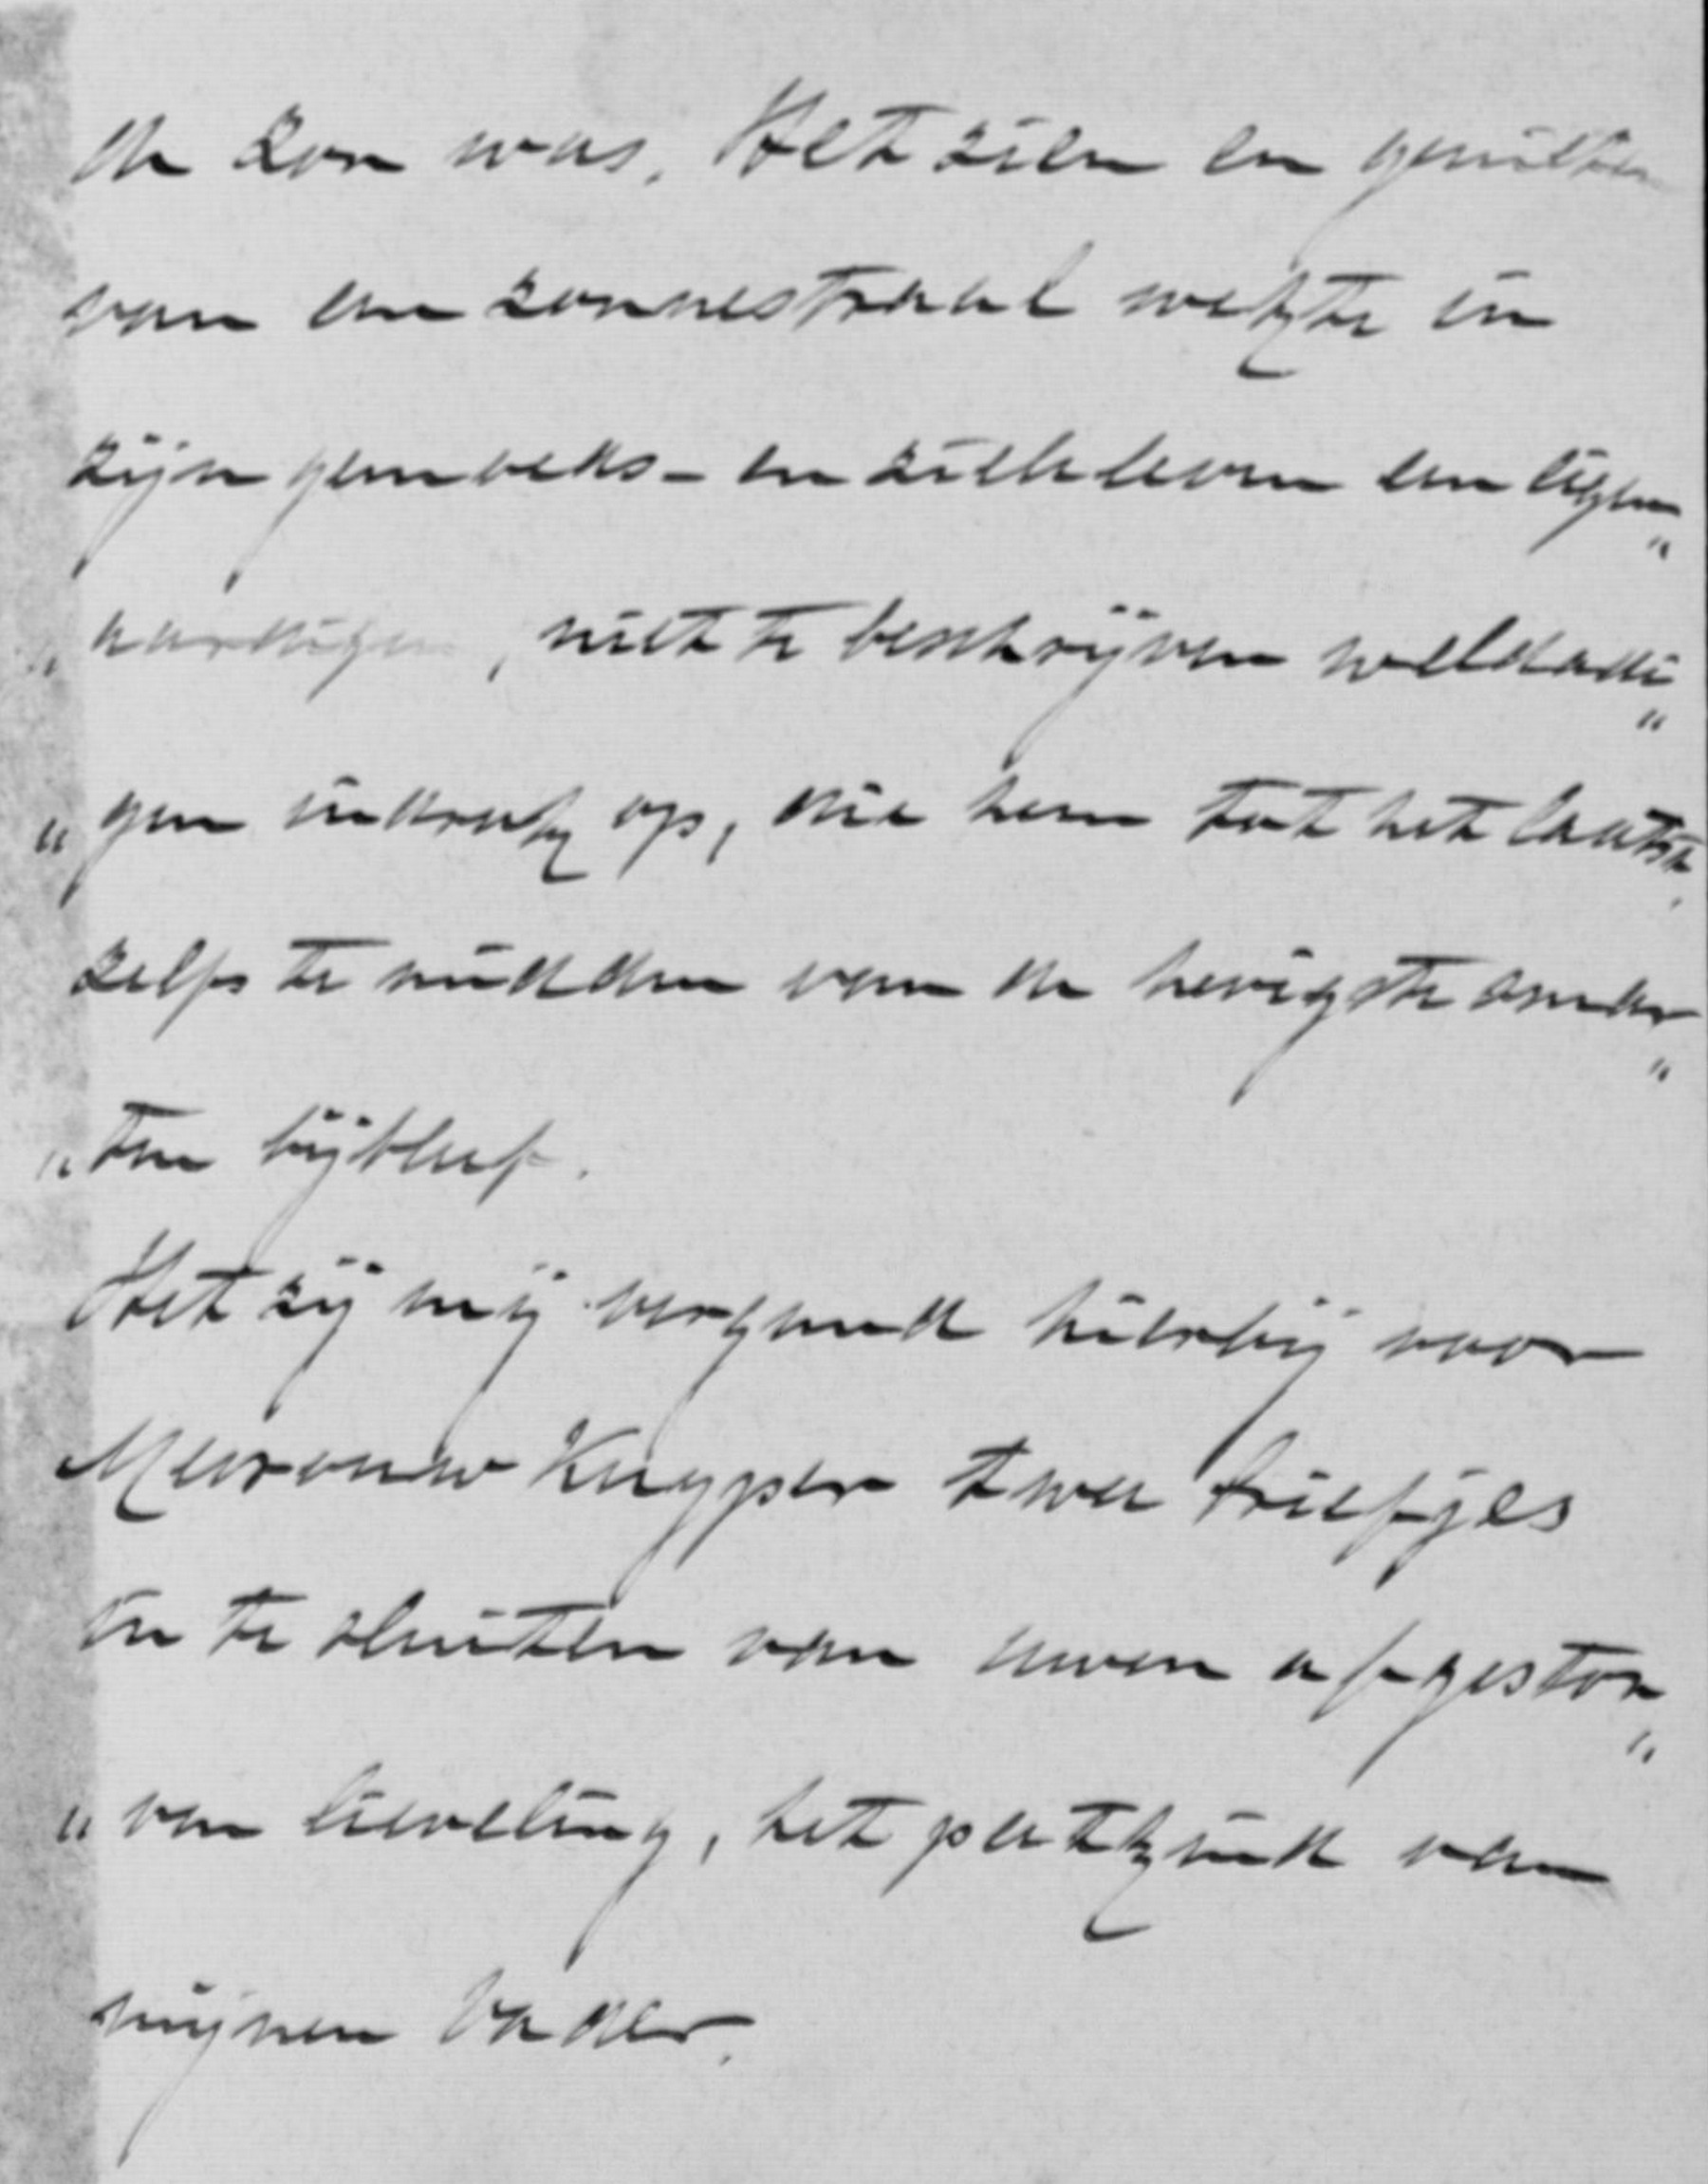 de zon was. Het zien en genieten
van een zonnestraal wekte in
zijn gemoeds- en zieleleven een eigen„
„aardigen, niet te beschrijven weldadi„
„gen indruk op, die hem tot het laatst,
zelfs te midden van de hevigste smar„
„ten bijbleef.
Het zij mij vergund hierbij voor
Mevrouw Kuyper twee briefjes
in te sluiten van uwen afgestor„
„ven lieveling, het petekind van
mijnen Vader.